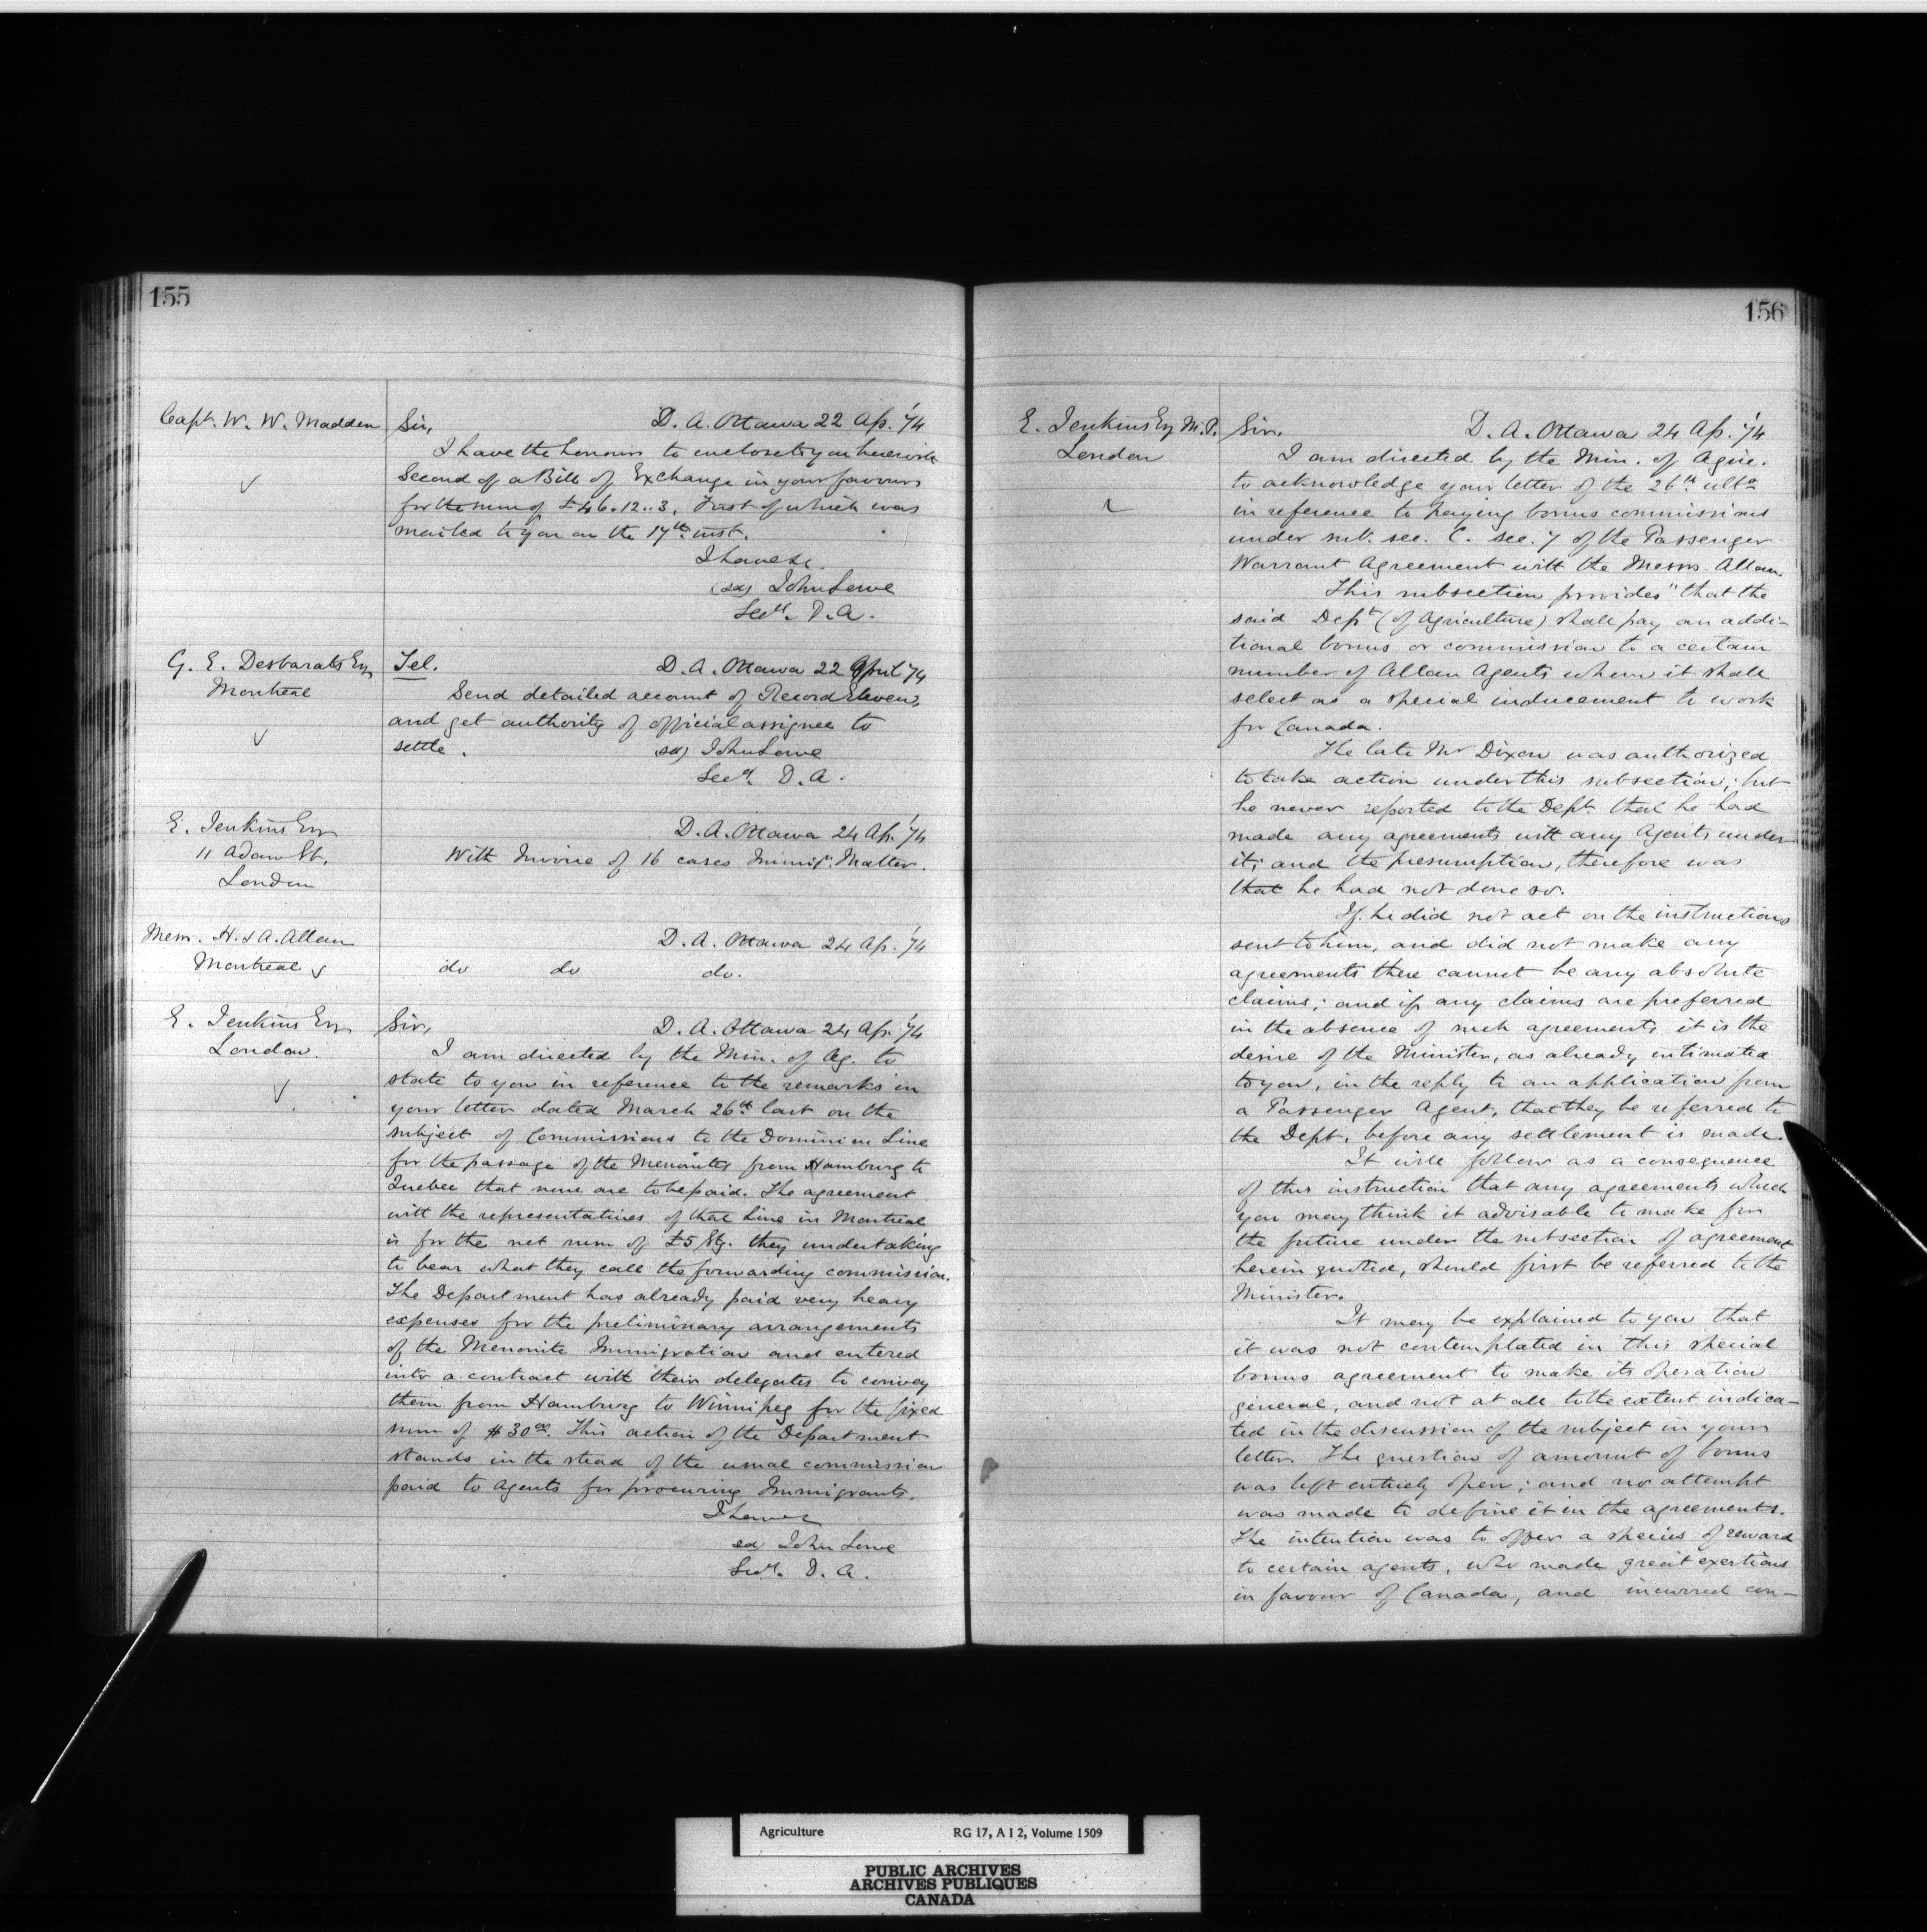 155
Capt. W. W. Madden
Sir, D. A. Ottawa 22 Ap. '74
I have the honour to enclose to you herewith
Second of a Bill of Exchange in your favour
for the sum of £46.12..3. First of which was
mailed to you on the 17th inst.
I have &c.
(sd) John Lowe
Secy. D. A.
G. E. Desbarats Esq
Montreal
Tel. D. A. Ottawa 22 April '74
Send detailed account of Record Eleven,
and get authority of official assignee to
settle. (sd) John Lowe
Secy. D. A.
E. Jenkins Esq
11 Adam St.
London
D. A. Ottawa 24 Ap. '74
With Invoice of 16 cases Immign. Matter.
Mess. H. & A. Allan
Montreal
D. A. Ottawa 24 Ap. '74
do do do.
E. Jenkins Esq
London.
Sir, D. A. Ottawa 24 Ap. '74
I am directed by the Min. of Ag. to
state to you in reference to the remarks in
your letter dated March 26th last on the
subject of Commissions to the Dominion Line
for the passage of the Menonites from Hamburg to
Quebec that none are to be paid. The agreement
with the representatives of that Line in Montreal
is for the net sum of £5 Stg. they undertaking
to bear what they call the forwarding commission.
The Department has already paid very heavy
expenses for the preliminary arrangements
of the Menonite Immigration and entered
into a contract with their delegates to convey
them from Hamburg to Winnipeg for the fixed
sum of $30.00. This action of the Department
stands in the stead of the usual commission
paid to Agents for procuring Immigrants.
I have &c
sd John Lowe
Secy. D. A.
156
E. Jenkins Esq M.P.
London
Sir, D. A. Ottawa 24 Ap. '74
I am directed by the Min. of Agric.
to acknowledge your letter of the 26th ulto
in reference to paying bonus commissions
under sub. sec. C. sec. 7 of the Passenger
Warrant Agreement with the Messrs Allan.
This subsection provides "that the
said Dept (of Agriculture) shall pay an addi-
tional bonus or commission to a certain
number of Allan Agents whom it shall
select as a special inducement to work
for Canada.
The late Mr Dixon was authorized
to take action under this subsection; but
he never reported to the Dept. that he had
made any agreements with any Agents under
it; and the presumption, therefore was
that he had not done so.
If he did not act on the instructions
sent to him, and did not make any
agreements there cannot be any absolute
claims; and if any claims are preferred
in the absence of such agreements it is the
desire of the Minister, as already intimated
to you, in the reply to an application from
a Passenger Agent, that they be referred to
the Dept. before any settlement is made.
It will follow as a consequence
of this instruction that any agreements which
you may think it advisable to make for
the future under the subsection of agreement
herein quoted, should first be referred to the
Minister.
It may be explained to you that
it was not contemplated in this special
bonus agreement to make its operation
general, and not at all to the extent indica-
ted in the discussion of the subject in your
letter. The question of amount of bonus
was left entirely open; and no attempt
was made to define it in the agreements.
The intention was to offer a species of reward
to certain agents, who made great exertions
in favour of Canada, and incurred con-
Agriculture RG 17, A I 2, Volume 1509
PUBLIC ARCHIVES
ARCHIVES PUBLIQUES
CANADA